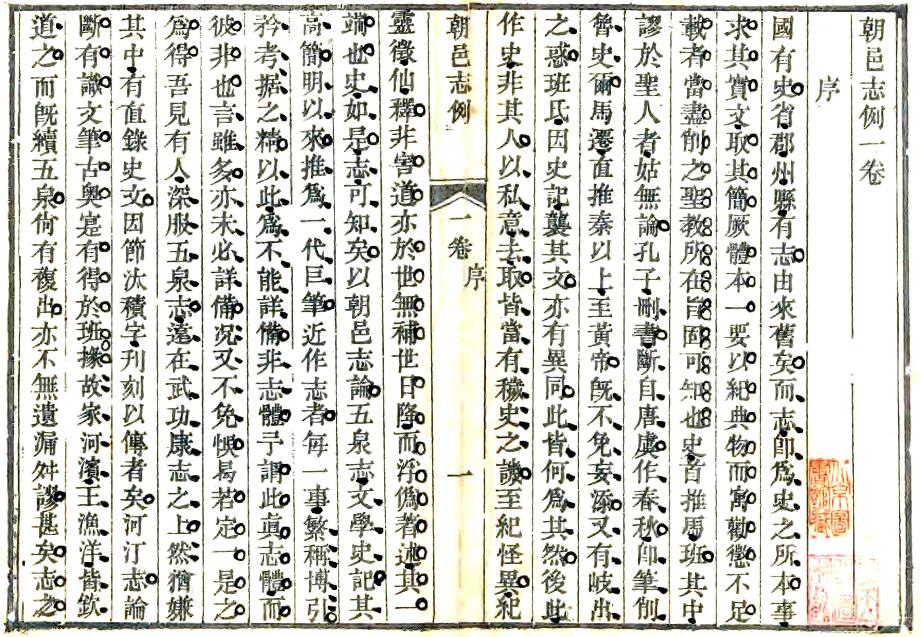 朝邑志例一卷
序
國有史省郡州縣有志由來舊矣而志即爲史之所本事
求其實文取其簡厥體本一要以紀典物而寓勸懲不足
載者當盡削之聖教所在旨固可知也史首推馬班其中
謬於聖人者姑無論孔子刪書斷自唐虞作春秋即筆削
魯史爾馬遷直推秦以上至黃帝旣不免妄添又有岐出
之惑班氏因史記襲其文亦有異同此皆何爲其然後此
作史非其人以私意去取皆當有穢史之譏至紀怪異紀
朝邑志例
一卷
序
一
靈徵仙釋非害道亦於世無補世日降而浮僞著述其一
端也史如是志可知矣以朝邑志論五泉志文學史記其
高簡明以來推爲一代巨筆近作志者每一事繁稱博引
矜考据之精以此爲不能詳備非志體予謂此眞志體而
彼非也言雖多亦未必詳備況又不免悞曷若定一是之
爲得吾見有人深服五泉志遠在武功康志之上然猶嫌
其中有直錄史文因節汰積字刊刻以傳者矣河汀志論
斷有識文筆古奧寔有得於班掾故家河濱王漁洋皆欽
道之而旣續五泉尙有複出亦不無遺漏舛謬甚矣志之